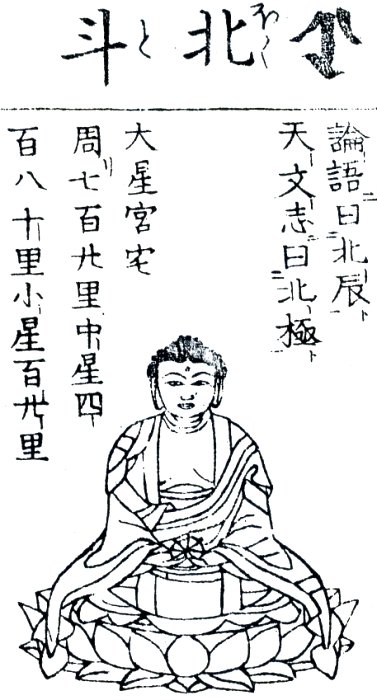 北斗
ほくと
論語ニ曰北辰ト
天文志ニ曰北極ト
大星宮宅
周リ七百廿里中星四
百八十里小星百廿里